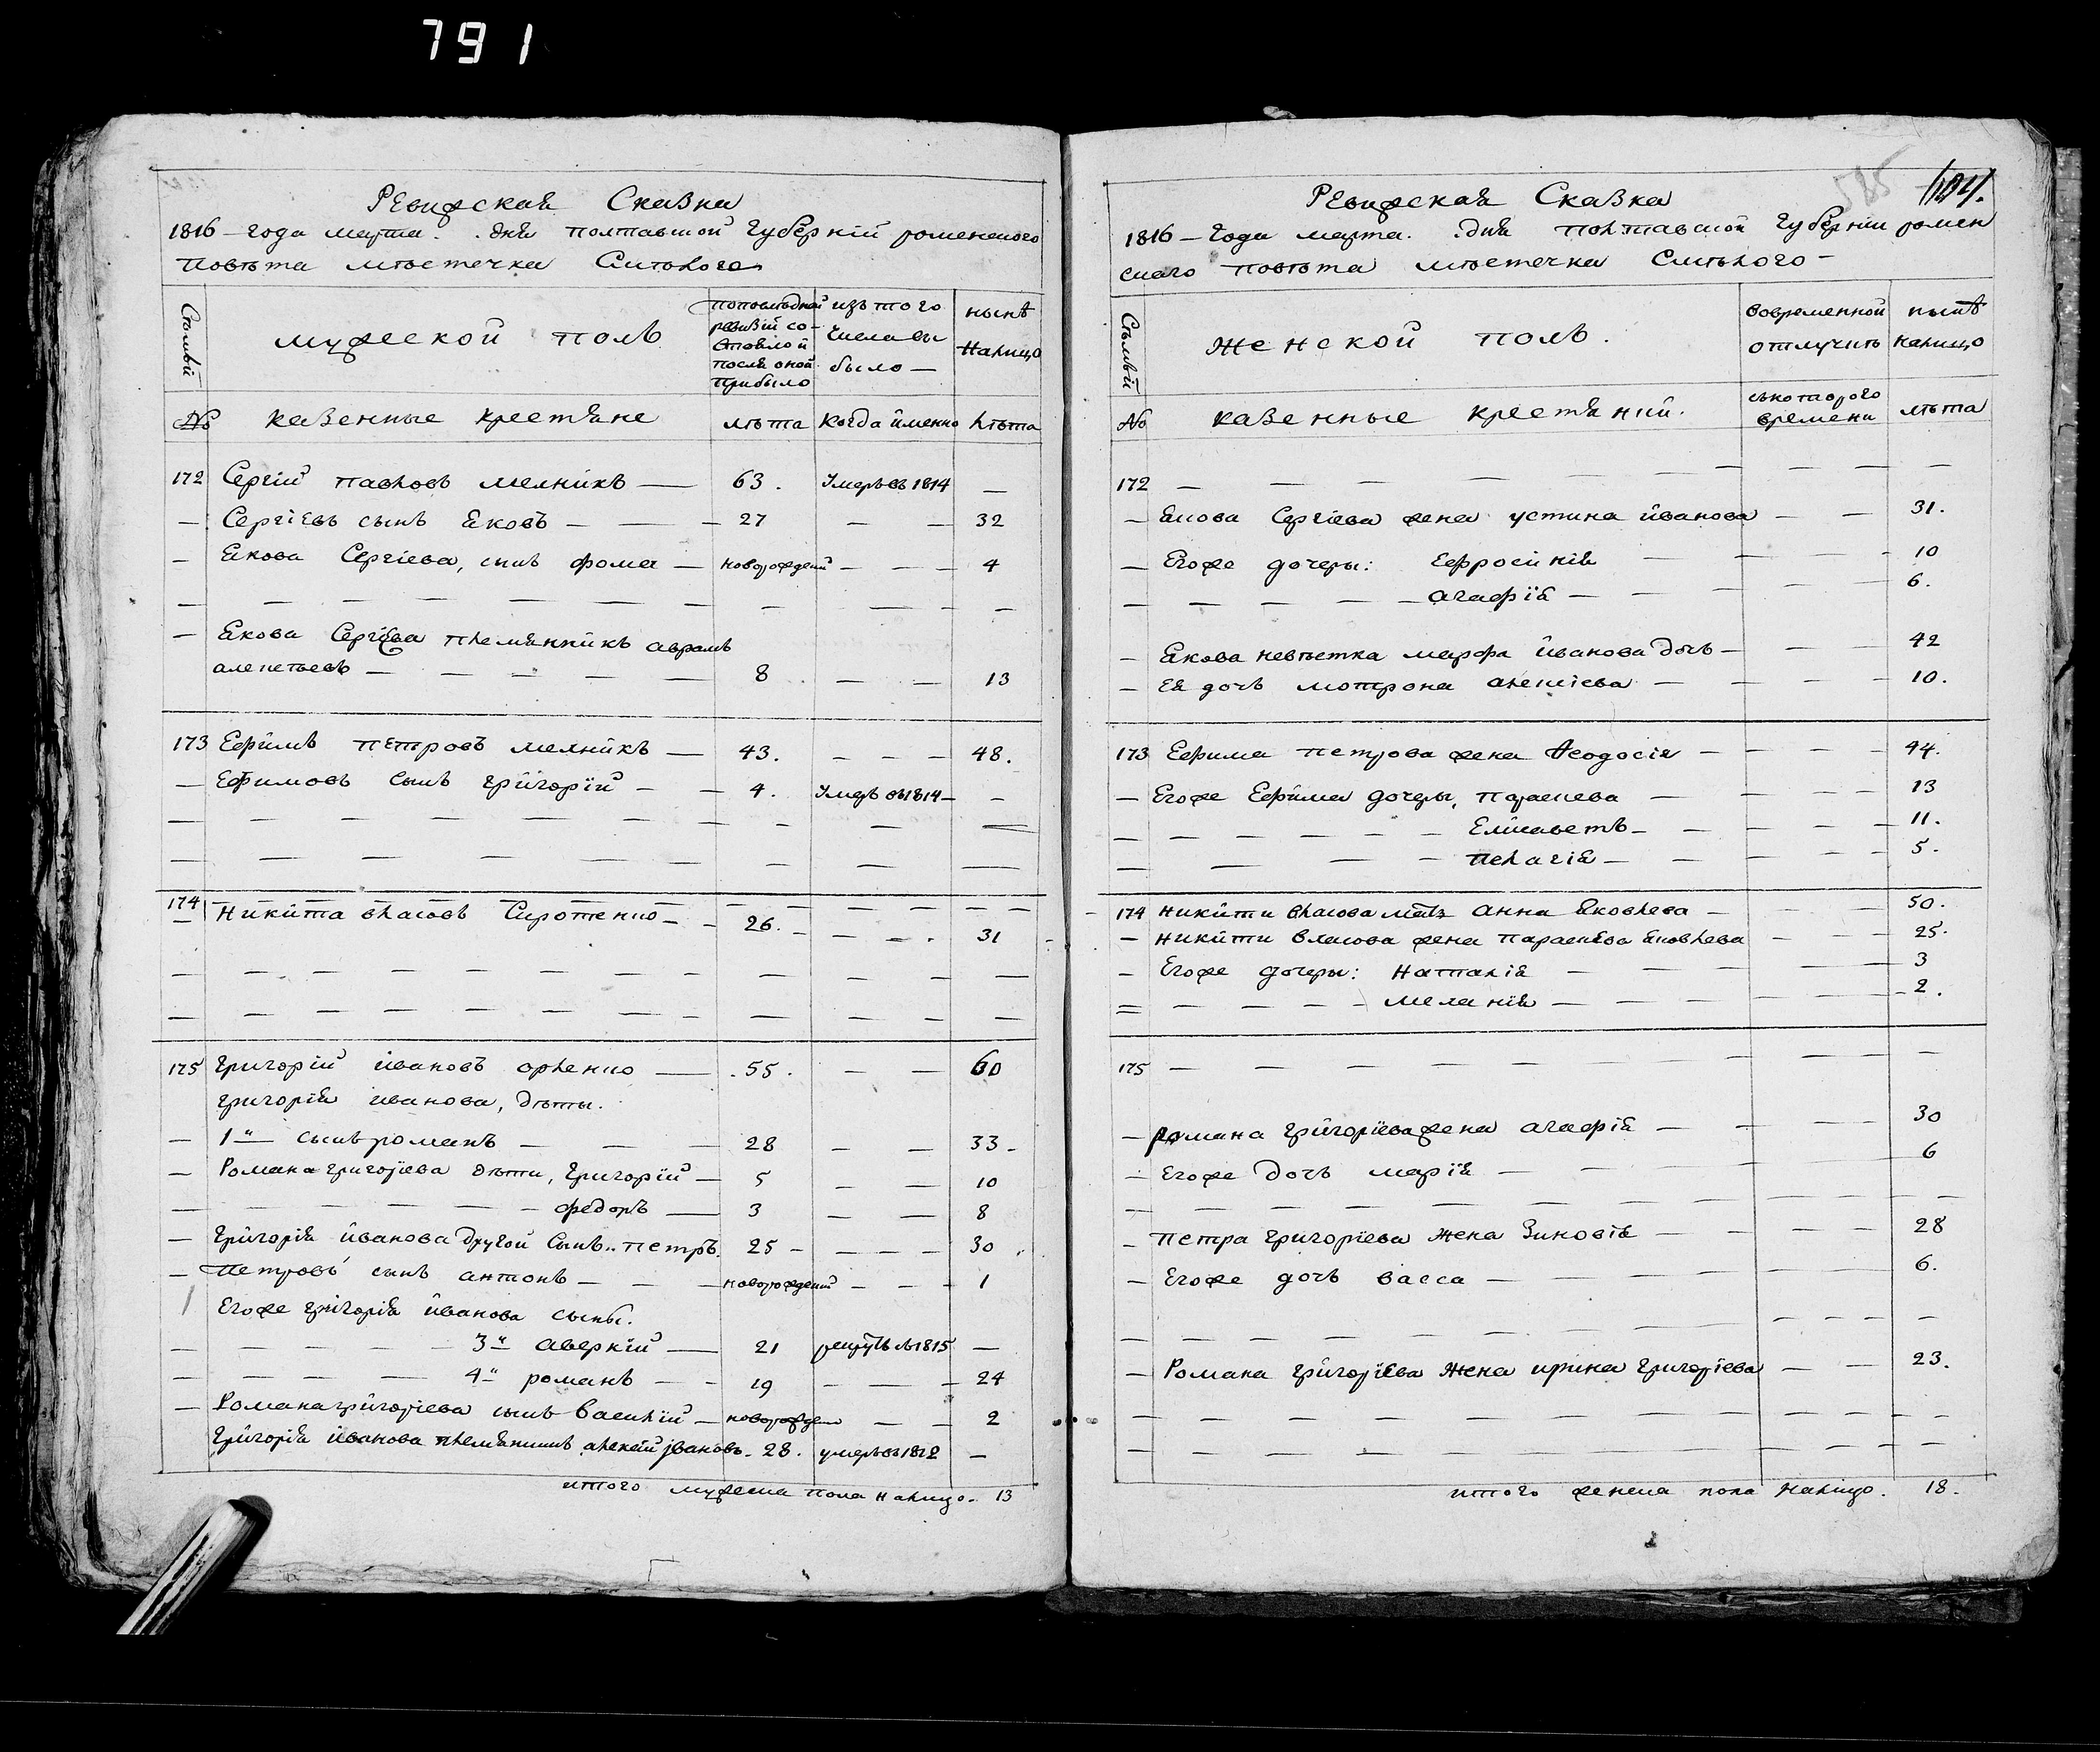 791
Ревижская Сказка
1816 – года марта. дня полтавской Губерніи роменского
повѣта мѣстечка Смѣлого
Семьи
мужеской полъ
попослѣдней ревизіи состояло и послѣ оной прибыло
изъ того числа выбыло —
нынѣ налицо
№ казенные крестяне лѣта когда именно лѣта
172 Сергій павловъ мелникъ — 63. Умеръ въ 1814 —
— Сергіевъ сынъ яковъ — — 27 — — 32
— Якова Сергіева, сынъ фома — новорожденный — — — 4
— Якова Сергіева племянникъ аврамъ
алексѣевъ — — — — 8 — — 13
173 Ефимъ петровъ мелникъ — 43. — — — 48.
— Ефимовъ сынъ григорій — — 4. Умеръ въ 1814 — —
174 Никита власовъ Сиротенко — — 26. — — — 31
175 Григорій ивановъ орленко — 55. — — 60
григорія иванова, дѣты.
— 1й сынъ романъ — — — 28 — — 33
— Романа григорiева дѣти, григорій — 5 — — 10
— — — — — федоръ — 3 — — 8
— Григорія иванова другой сынъ петръ. 25 — — — — 30
— Петровъ сынъ антонъ — — — новорожденный — — — 1
Егоже григорія иванова сыны.
— — — — — 3й аверкій — 21 рекрутъ въ 1815 —
— — — — 4й романъ — — 19 — — — 24
— Романа григоріева сынъ василій — новорожден — — 2
григорія иванова племянникъ алексій ивановъ — 28. умеръ въ 1812 —
итого мужеска пола налицо. 13
585
Ревижская Сказка
1816 – года марта. дня полтавской губерніи ромен
ского повѣта мѣстечка Смѣлого –
Семьи
женской полъ.
вовременной отлучкѣ
нынѣ налицо
№ казенные крестяний. съкоторого времени лѣта
172 — — — — — —
— Якова Сергіева жена устина иванова — — 31.
— Егоже дочеры: Ефросинія — — — — 10
— — — — — агафія — — — — 6.
— Якова невѣстка марфа иванова дочъ — — — 42
— Ея дочъ мотрона алексіева — — — — 10.
173 Ефима петрова жена Ѳеодосія — — — — 44.
— Егоже Ефима дочеры, параскева — — — — 13
— — — — — — Елисаветъ — — — — 11.
— — — — пелагія — — — — 5.
174 никити власова мать анна яковлева — — — 50.
— никити власова жена параскева яковлева — — 25.
— Егоже дочеры: наталія — — — — 3
— — — — — меланія — — — — 2.
175 — — — — — — —
— романа григоріева жена агафія — — — — 30
— Егоже дочъ марія — — — — 6
— петра григоріева жена зиновія — — — — 28
— Егоже дочъ васса — — — — 6.
— Романа григоріева жена ирина григоріева — — 23.
итого женска пола налицо. 18.